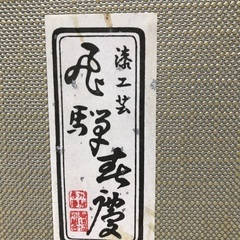 漆工芸
飛騨春慶